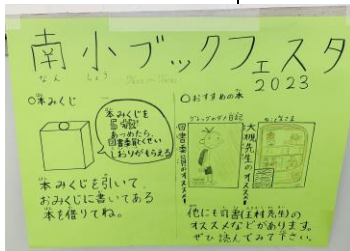 南小ブックフェスタ
なん しょう
2023
○本みくじ
本みくじを
あつめたら、
図書委員とくせい
しおりがもらえる
本みくじを引いて、
おみくじに書いてある
本を借りてね。
○おすすめの本
グレッグのダメ日記
図書委員のオススメ
大槻先生のオススメ
他にも司書(王村先生)の
オススメなどがあります。
ぜひ読んでみて下さい。